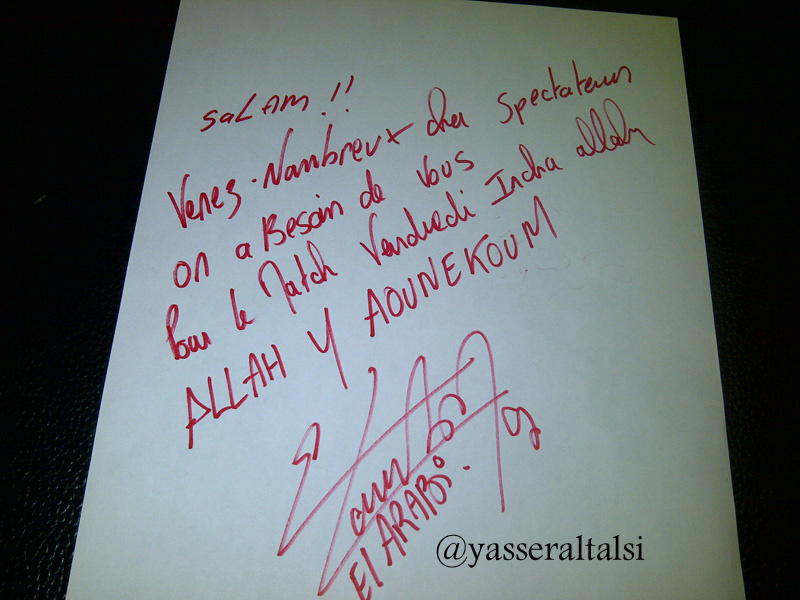 SALAM !!
Venez-Nombreux cher Spectateurs
on a Besoin de Vous
Pour le Match Vendredi Incha allah
ALLAH Y AOUNEKOUM
9
El ARABi.
@yasseraltalsi